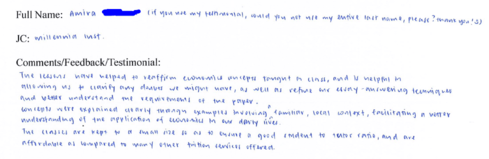 Full Name: Amira (if you use my testimonial, could you not use my entire last name, please? Thank you! :))
JC: millennia inst.
Comments/Feedback/Testimonial:
The lessons have helped to reaffirm economics concepts taught in class, and is helpful in
allowing us to clarify any doubts we might have, as well as refine our essay-answering techniques
and better understand the requirements of the paper.
Concepts were explained clearly through examples involving familiar, local context, facilitating a better
understanding of the application of economics in our daily lives.
The classes are kept to a small size so as to ensure a good student to tutor ratio, and are
affordable as compared to many other tuition services offered.